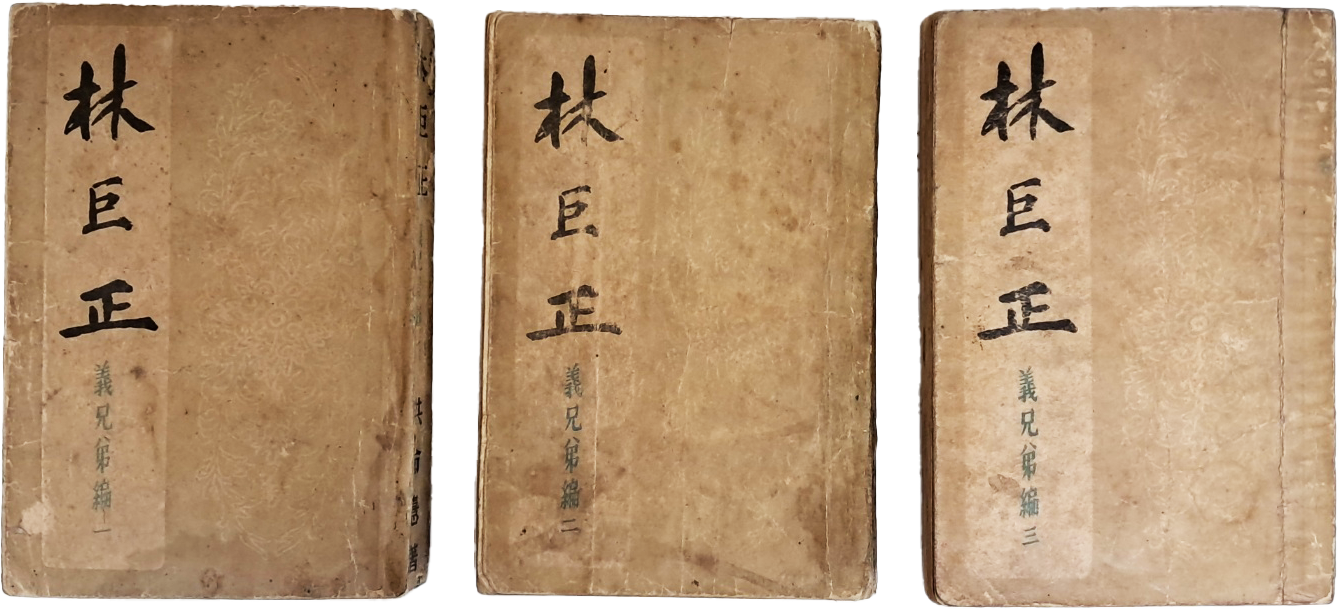 林巨正
義兄弟編一
林巨正
洪命憙 著
林巨正
義兄弟編二
林巨正
義兄弟編三